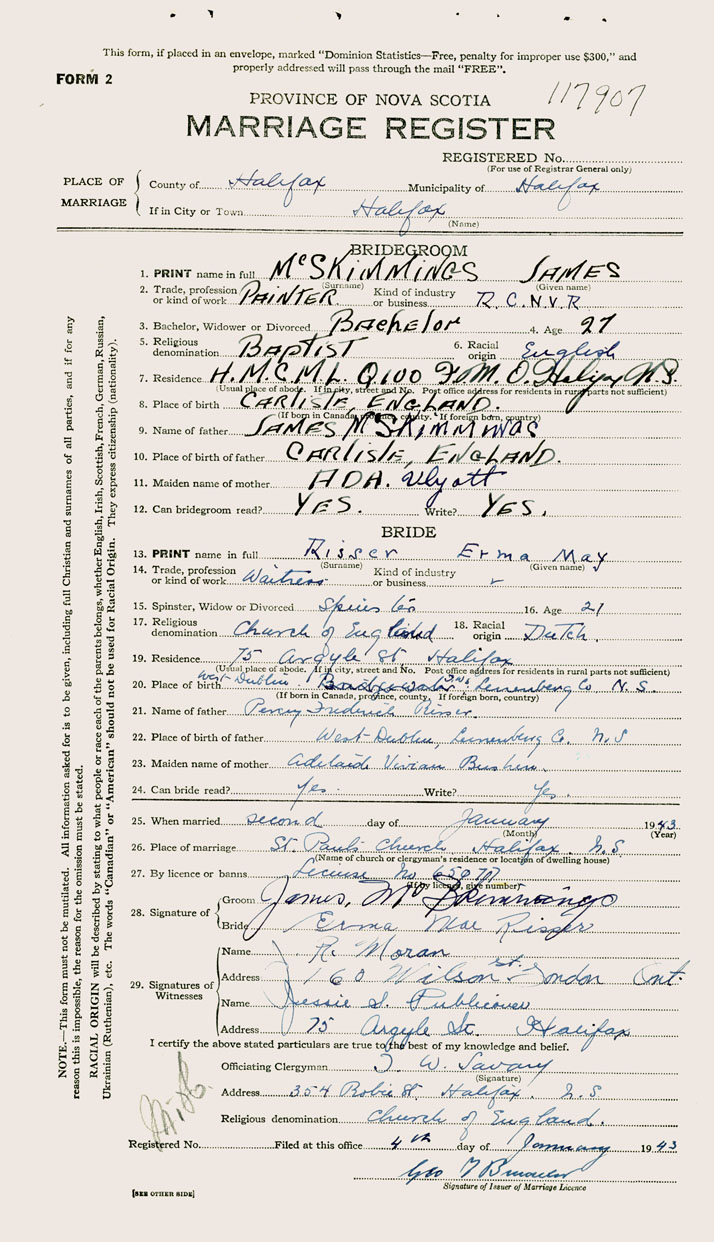 This form, if placed in an envelope, marked "Dominion Statistics—Free, penalty for improper use $300," and
properly addressed will pass through the mail "FREE".
FORM 2
117907
PROVINCE OF NOVA SCOTIA
MARRIAGE REGISTER
REGISTERED No.
(For use of Registrar General only)
PLACE OF MARRIAGE
County of Halifax Municipality of Halifax
If in City or Town Halifax
(Name)
BRIDEGROOM
1. PRINT name in full McSKIMMINGS JAMES
(Surname) (Given name)
2. Trade, profession or kind of work PAINTER Kind of industry or business R.C.N.V.R
3. Bachelor, Widower or Divorced Bachelor 4. Age 27
5. Religious denomination BAPTIST 6. Racial origin English
7. Residence H.M.C.M.L. Q100 F.M.O. Halifax N.S.
(Usual place of abode. If in city, street and No. Post office address for residents in rural parts not sufficient)
8. Place of birth CARLISLE, ENGLAND.
(If born in Canada, province, county. If foreign born, country)
9. Name of father JAMES McSKIMMINGS
10. Place of birth of father CARLISLE, ENGLAND.
11. Maiden name of mother ADA.
12. Can bridegroom read? YES. Write? YES.
BRIDE
13. PRINT name in full Risser Erma May
(Surname) (Given name)
14. Trade, profession or kind of work Waitress Kind of industry or business
15. Spinster, Widow or Divorced Spinster 16. Age 21
17. Religious denomination Church of England 18. Racial origin Dutch.
19. Residence 75 Argyle St. Halifax
(Usual place of abode. If in city, street and No. Post office address for residents in rural parts not sufficient)
20. Place of birth West Dublin Lunenburg Co N.S.
(If born in Canada, province, county. If foreign born, country)
21. Name of father Percy Frederick Risser.
22. Place of birth of father West Dublin, Lunenburg Co. N.S
23. Maiden name of mother Adelaide Vivian
24. Can bride read? Yes. Write? Yes.
25. When married second day of January 1943
(Month) (Year)
26. Place of marriage St. Paul's Church, Halifax. N.S
(Name of church or clergyman's residence or location of dwelling house)
27. By licence or banns License No
(If by licence, give number)
28. Signature of
Groom James, McSkimmings
Bride Erma Mae Risser
29. Signatures of Witnesses
Name R. Moran
Address 160 Wilson St. London Ont.
Name Jessie S. Publicover
Address 75 Argyle St. Halifax
I certify the above stated particulars are true to the best of my knowledge and belief.
Officiating Clergyman W. Savary
(Signature)
Address 354 Robie St. Halifax. N.S
Religious denomination Church of England.
Registered No. Filed at this office 4th day of January 1943
Signature of Issuer of Marriage Licence
[SEE OTHER SIDE]
NOTE.—This form must not be mutilated. All information asked for is to be given, including full Christian and surnames of all parties, and if for any
reason this is impossible, the reason for the omission must be stated.
RACIAL ORIGIN will be described by stating to what people or race each of the parents belongs, whether English, Irish, Scottish, French, German, Russian,
Ukrainian (Ruthenian), etc. The words "Canadian" or "American" should not be used for Racial Origin. They express citizenship (nationality).